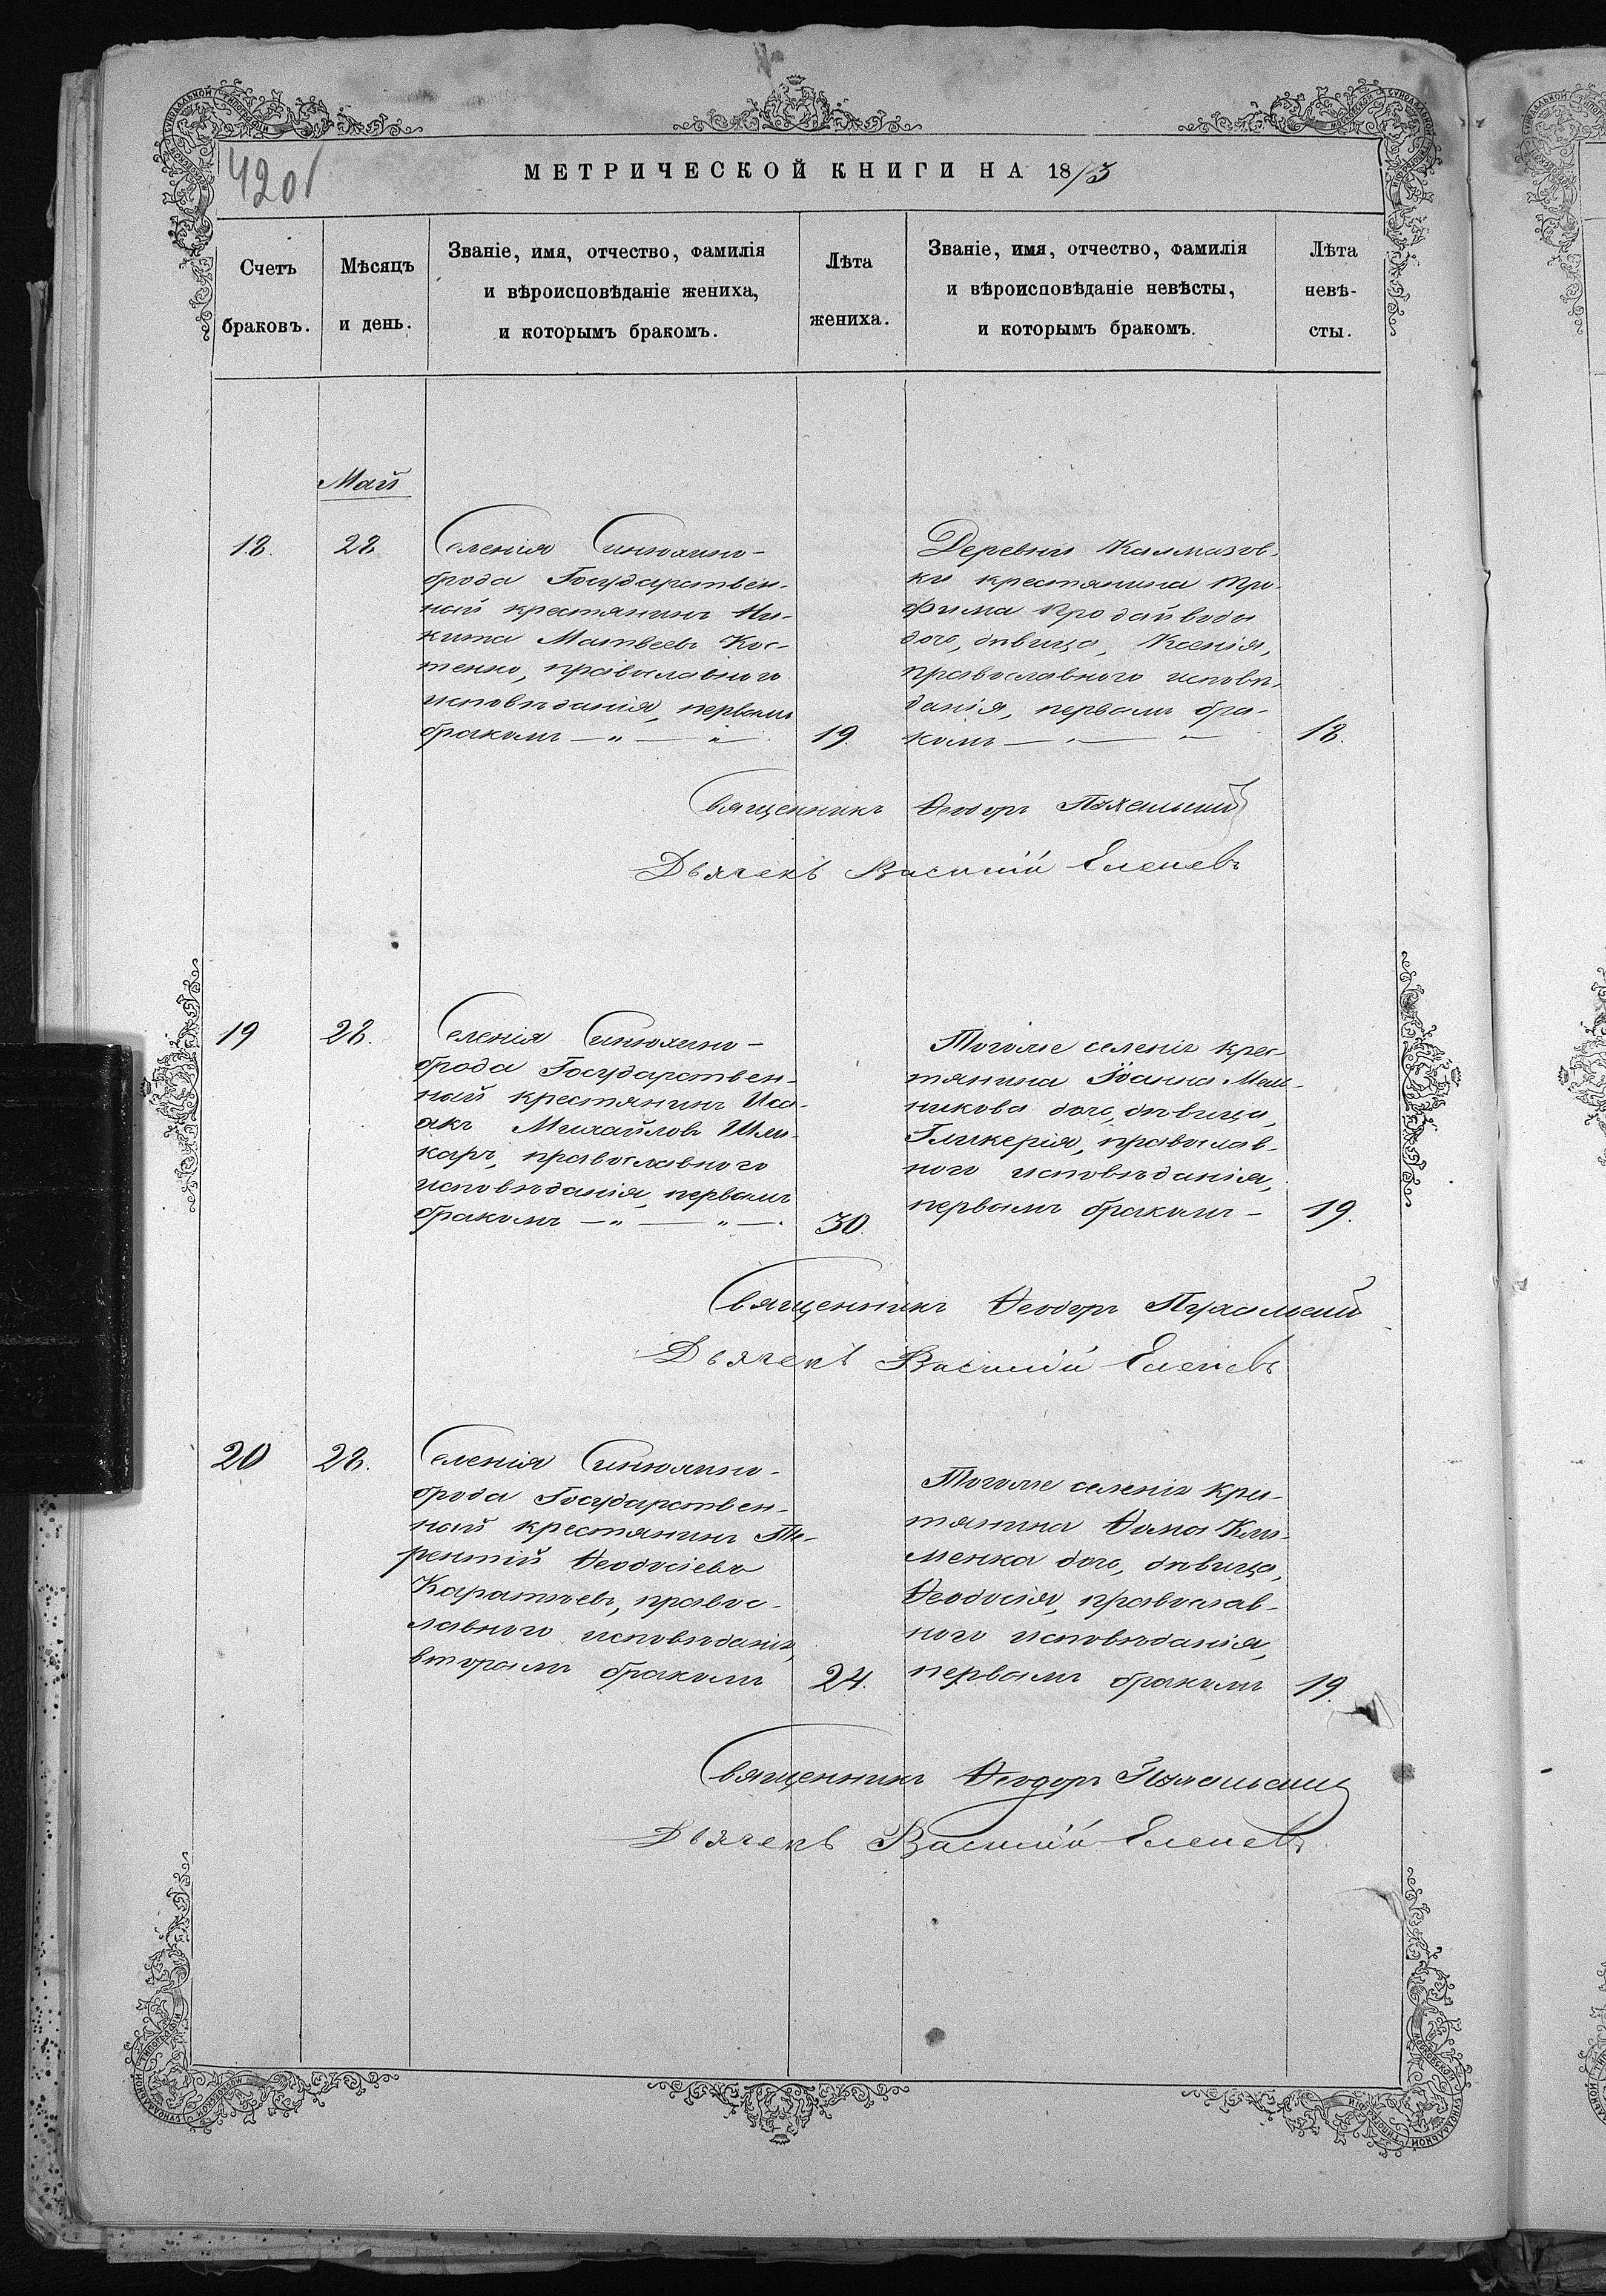 420 /
МЕТРИЧЕСКОЙ КНИГИ НА 1873
Счетъ браковъ.
Мѣсяцъ и день.
Званіе, имя, отчество, фамилія
и вѣроисповѣданіе жениха,
и которымъ бракомъ.
Лѣта
жениха.
Званіе, имя, отчество, фамилія
и вѣроисповѣданіе невѣсты,
и которымъ бракомъ.
Лѣта
невѣ-
сты.
Май
18.
28
Селенія Синюхино-
брода Государствен-
ный крестянинъ Ни-
кита Матвеевъ Кос-
тенко, православного
исповѣданія, первымъ
бракомъ — „ — „ —
19.
Деревни Калмазов-
ки крестянина Тро-
фима Продайводы
доч, дѣвица, Ксенія,
православного исповѣ-
данія, первымъ бра-
комъ — „ — „ —
18.
Священникъ Ѳеодоръ
Дьячекъ Василій Еленевъ
19
28.
Селенія Синюхино-
брода Государствен-
ный крестянинъ Иса-
акъ Михайловъ
православного
исповѣданія, первымъ
бракомъ — „ — „ —.
30.
Тогоже селенія крес-
тянина Іоанна Мель-
никова доч, дѣвица,
Гликерія, православ-
ного исповѣданія,
первымъ бракомъ —
19.
Священникъ Ѳеодоръ
Дьячекъ Василій Еленевъ
20
28.
Селенія Синюхино-
брода Государствен-
ный крестянинъ Те-
рентій Ѳеодосіевъ
Каратѣевъ, правос-
лавного исповѣданія,
вторымъ бракомъ
24.
Тогоже селенія крес-
тянина Ѳомы Кли-
менка доч, дѣвица,
Ѳеодосія, православ-
ного исповѣданія,
первымъ бракомъ
19.
Священникъ Ѳеодоръ
Дьячекъ Василій Еленевъ